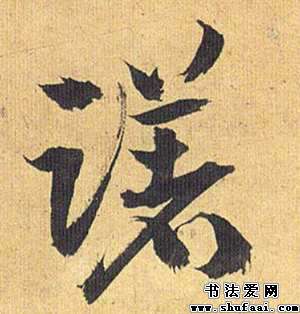 诺
书法爱网
www.shufaai.com